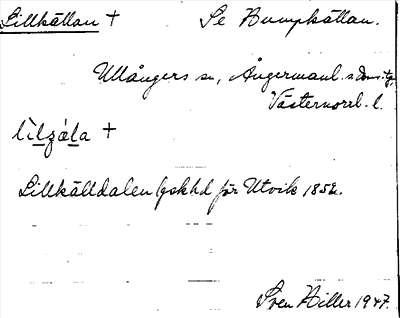 Lillkällan + Se Bumpkällan.
Ullångers sn, Ångermanl. s. doms. tg,
Västernorrl. l.
lìlzá̤la +
Lillkälldalen lgskhd för Utvik 1852.
Sven Hiller 1947.